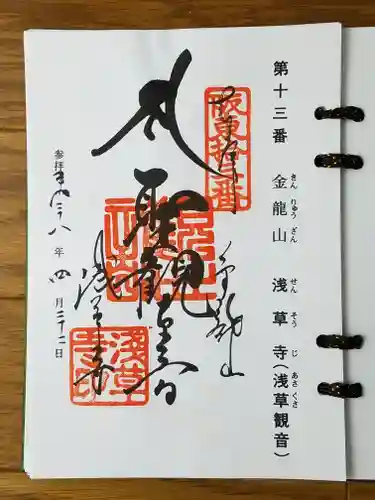 第十三番 金龍山 浅草寺(浅草観音)
きんりゅうざん せんそうじ あさくさ
坂東拾三番
金龍山
聖観世音
浅草寺
参拝 平成二八年四月二十二日